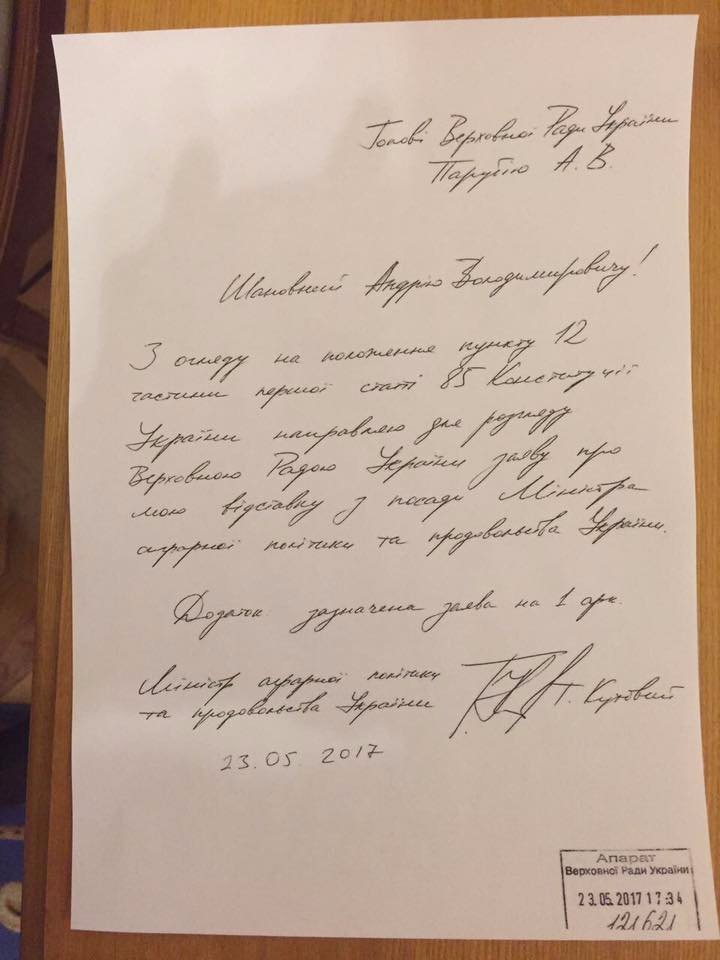 Голові Верховної Ради України
Парубію А. В.
Шановний Андрію Володимировичу!
З огляду на положення пункту 12
частини першої статті 85 Конституції
України направляю для розгляду
Верховною Радою України заяву про
мою відставку з посади Міністра
аграрної політики та продовольства України.
Додаток: зазначена заява на 1 арк.
Міністр аграрної політики
та продовольства України Т. Кутовий
23.05.2017
Апарат
Верховної Ради України
23.05.2017 17:34
121621